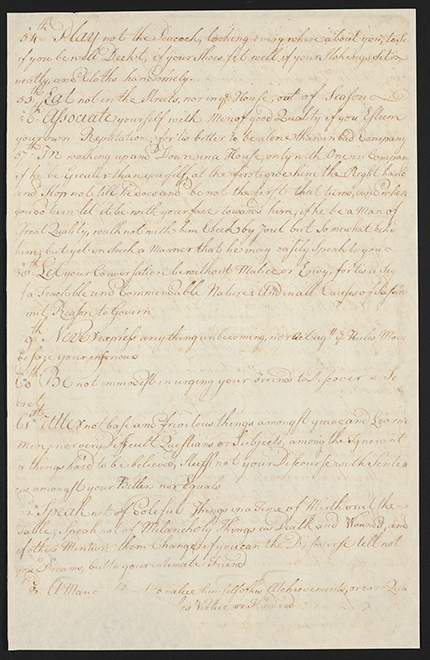 54th Play not the Peacock, looking every where about you, to See
if you be well Deck't, if your Shoes fit well if your Stokings Sit
neatly, and Cloths handsomely.
55th Eat not in the Streets, nor in ye House, out of Season
56th Associate yourself with Men of good Quality if you Esteem
your own Reputation; for 'tis better to be alone than in bad Company
57th In walking up and Down in a House, only with One in Compan
if he be Greater than yourself, at the first give him the Right hand
and Stop not till he does and be not the first that turns, and when
you do turn let it be with your face towards him, if he be a Man of
Great Quality, walk not with him Cheek by Joul but Somewhat behind
him; but yet in Such a Manner that he may easily Speak to you
58th Let your Conversation be without Malice or Envy, for 'tis a Sig
f a Tractable and Commendable Nature: And in all Causes of Passion
mit Reason to Govern
9th Never express anything unbecoming, nor Act agst ye Rules Mora
before your inferiours
60th Be not immodest in urging your Friends to Discover a Se
cret
61st Utter not base and frivolous things amongst grave and Learn'd
Men, nor very Difficult Questians or Subjects, among the Ignorant
things hard to be believed, Stuff not your Discourse with Senten
amongst your Betters nor Equals
Speak not of doleful Things in a Time of Mirth or at the
Table; Speak not of Melancholy Things as Death and Wounds, and
if others Mention them Change if you can the Discourse tell not
your Dreams, but to your intimate Friend
A Man o value himself of his Atchievements, or rare Qua
s Virtue or Kindred